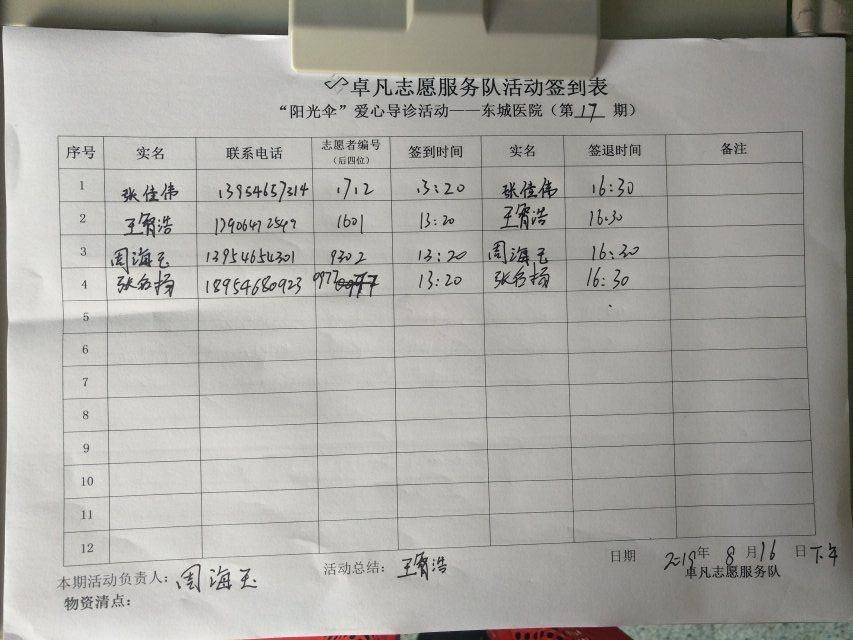 卓凡志愿服务队活动签到表
“阳光伞”爱心导诊活动——东城医院（第 17 期）
序号 实名 联系电话 志愿者编号（后四位） 签到时间 实名 签退时间 备注
1 张佳伟 13954657314 1712 13:20 张佳伟 16:30
2 王霄浩 13906472549 1601 13:20 王霄浩 16:30
3 周海玉 13954654301 9302 13:20 周海玉 16:30
4 张名扬 18954680923 0977 13:20 张名扬 16:30
5
6
7
8
9
10
11
12
本期活动负责人：周海玉 活动总结：王霄浩 日期 2019年 8 月 16 日下午
物资清点： 卓凡志愿服务队